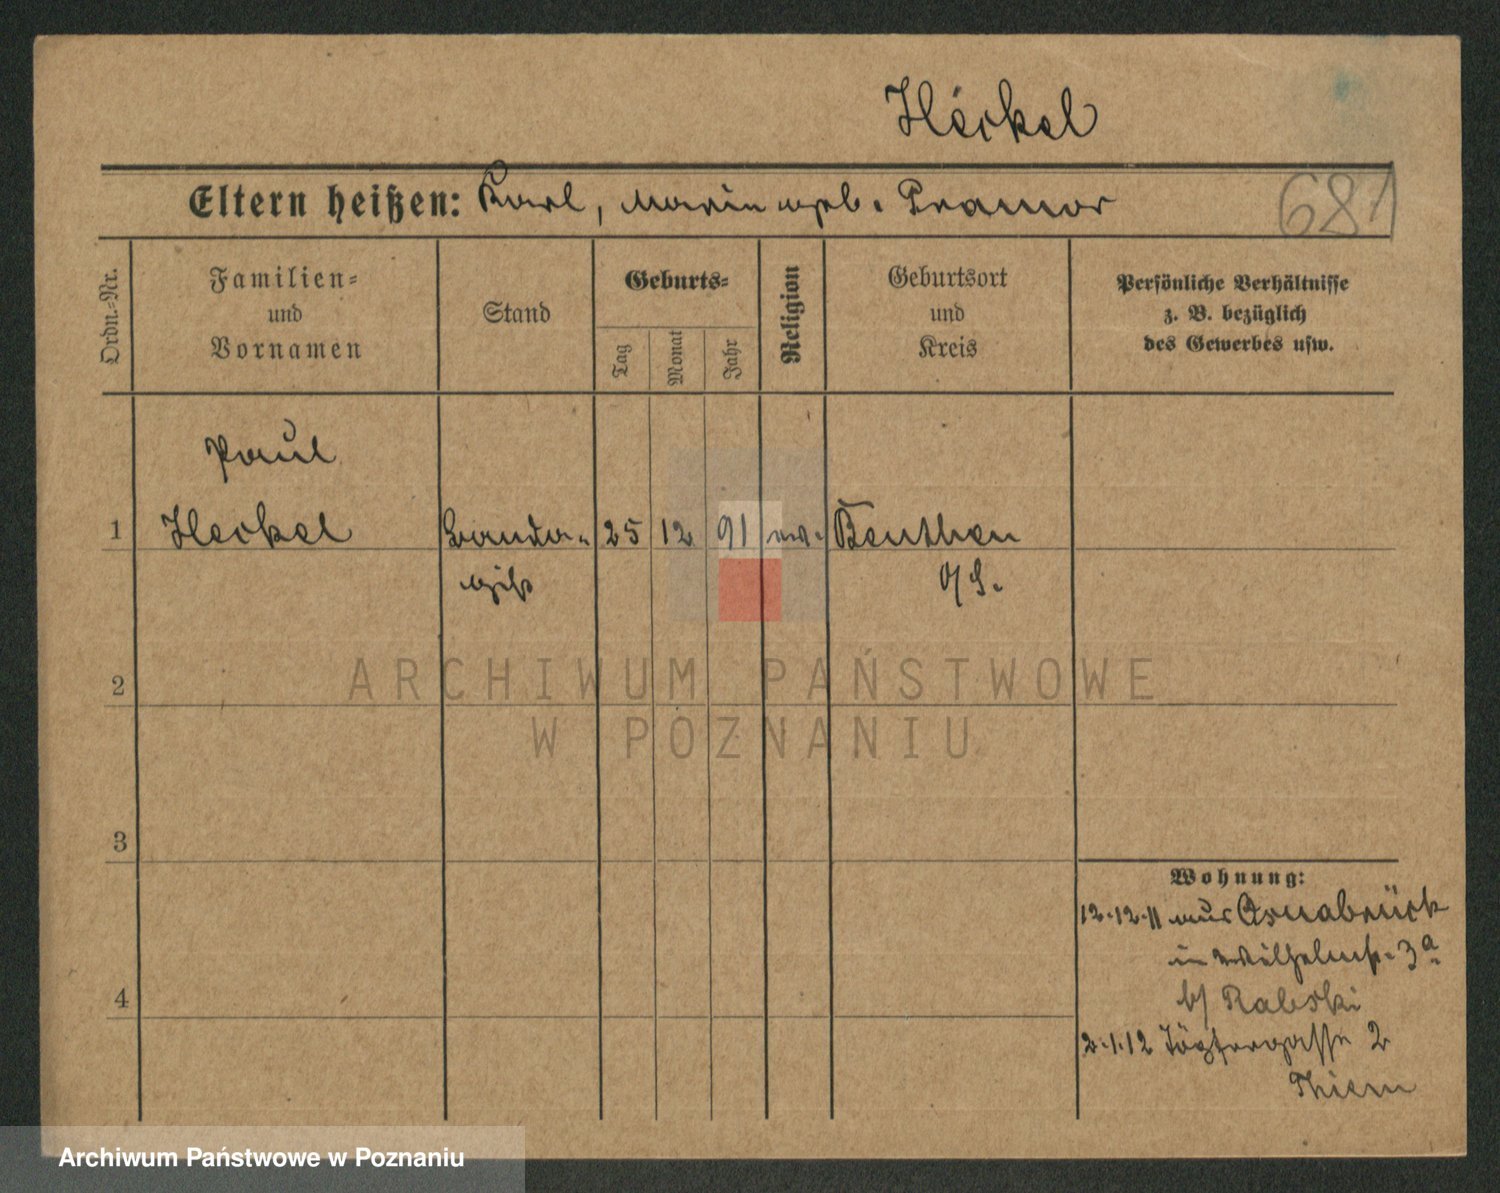 Heckel
Eltern heißen: Karl, Marie geb. Pramor
681
Ordn.-Nr.
Familien- und Vornamen
Stand
Geburts-
Tag
Monat
Jahr
Religion
Geburtsort und Kreis
Persönliche Verhältnisse z. B. bezüglich des Gewerbes usw.
Paul
1 Heckel Banda- 25 12 91 ev. Beuthen
gist O/S.
2
3
4
Wohnung:
12.12.11 aus Osnabrück
in Wilhelmstr. 3a
b/ Rabski
2.1.12 Töpfergasse 2
Thiem
ARCHIWUM PAŃSTWOWE
W POZNANIU
Archiwum Państwowe w Poznaniu